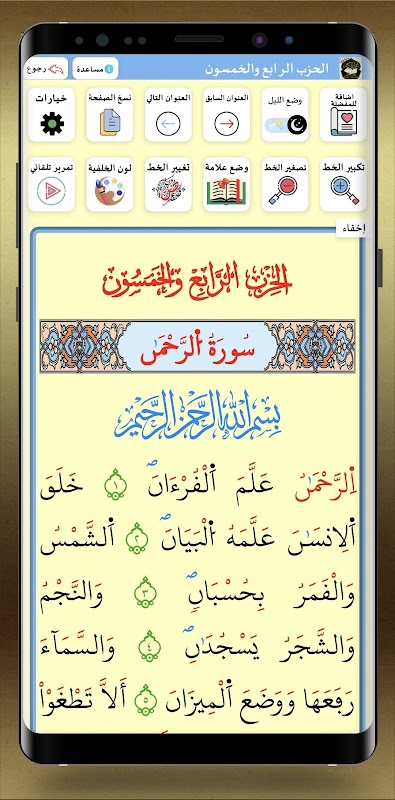 الحزب الرابع والخمسون
مساعدة
رجوع
إضافة للمفضلة
وضع الليل
العنوان السابق
العنوان التالي
نسخ الصفحة
خيارات
تكبير الخط
تصغير الخط
وضع علامة
تغيير الخط
لون الخلفية
تمرير تلقائي
إخفاء
الحِزْبُ الرَّابِعُ وَالخَمْسُون
سُورَةُ اُ۬لرَّحْمَٰن
بِسْمِ اللَّهِ الرَّحْمَنِ الرَّحِيمِ
اِ۬لرَّحْمَٰنُ عَلَّمَ اَ۬لْقُرْءَانَۖ ١ خَلَقَ
اَ۬لِانسَٰنَ عَلَّمَهُ اُ۬لْبَيَانَۖ ٢ اَ۬لشَّمْسُ
وَالْقَمَرُ بِحُسْبَانٖۖ ٣ وَالنَّجْمُ
وَالشَّجَرُ يَسْجُدَٰنِۖ ٤ وَالسَّمَآءَ
رَفَعَهَا وَوَضَعَ اَ۬لْمِيزَانَ ٥ أَلَّا تَطْغَوْاْ